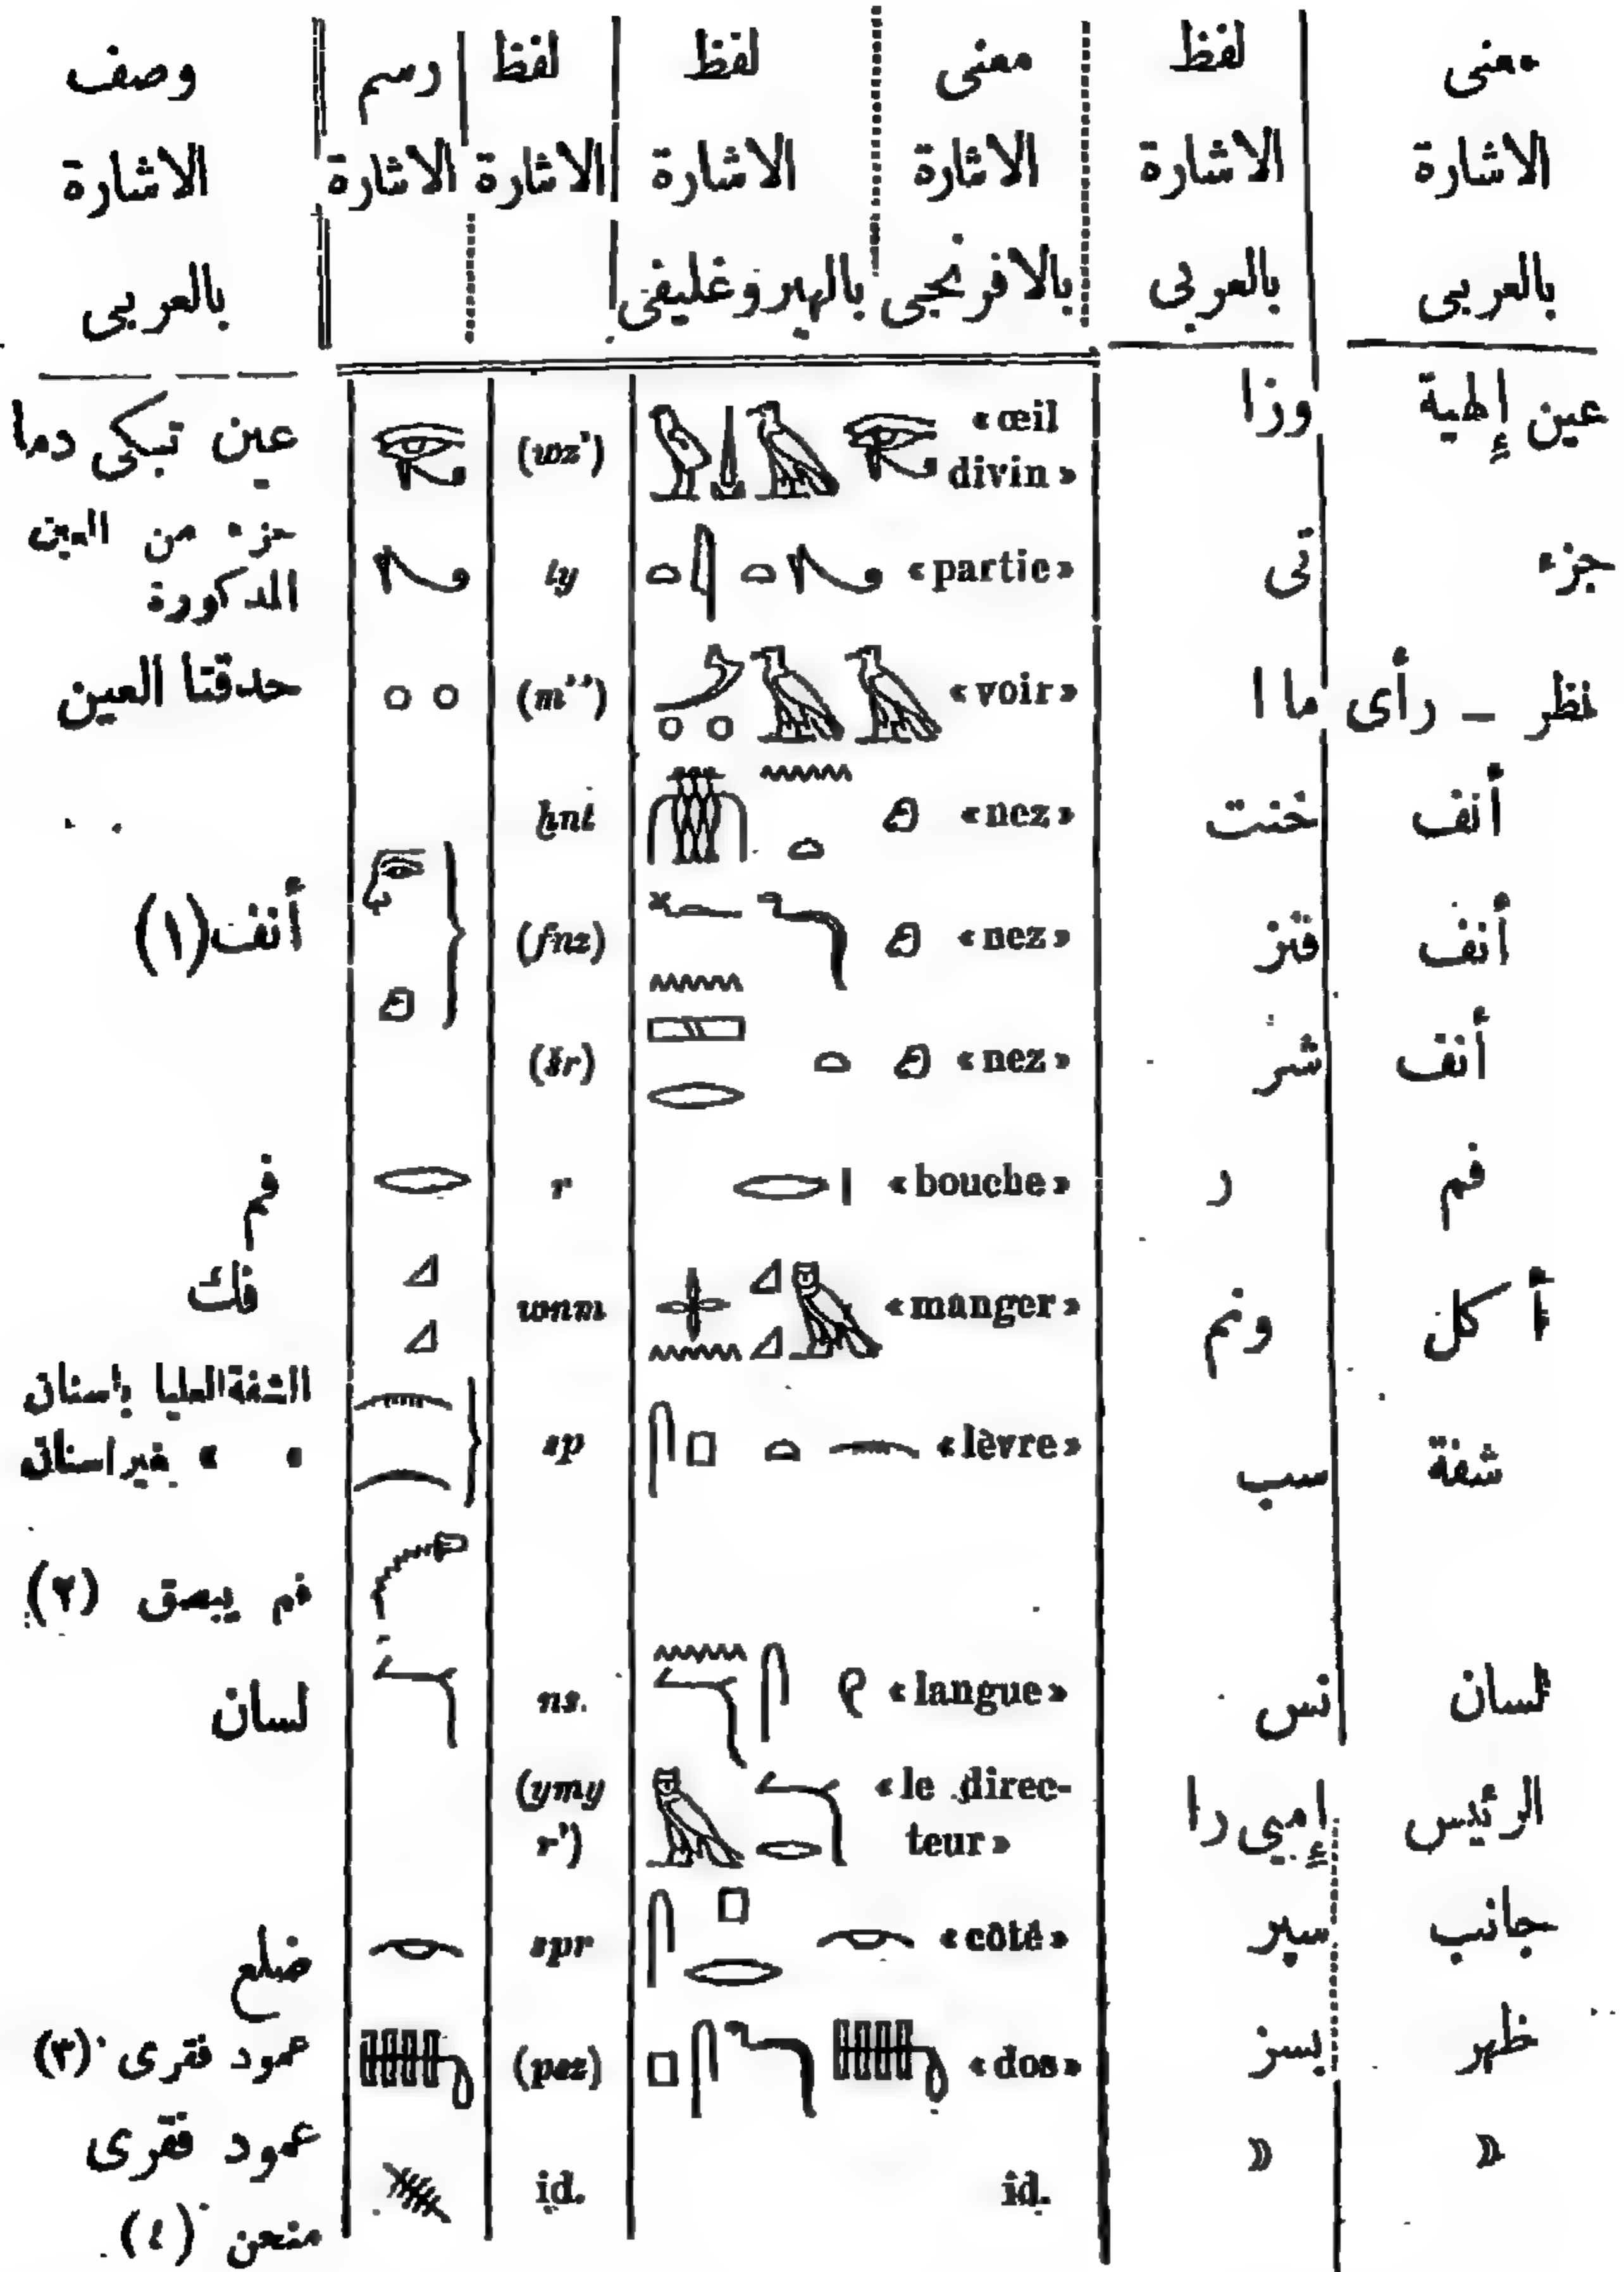 معنى الاشارة بالعربى | لفظ الاشارة بالعربى | معنى الاشارة بالافرنجى | لفظ الاشارة بالهيروغليفى | لفظ الاشارة | رسم الاشارة | وصف الاشارة بالعربى
عين إلهية | وزا | «œil divin» | (wz') | عين تبكى دما
جزء | تى | «partie» | ty | جزء من العين المذكورة
نظر – رأى | ما ا | «voir» | (m'') | حدقتا العين
أنف | خنت | «nez» | ḫnt
أنف | فنز | «nez» | (fnz) | أنف (١)
أنف | شر | «nez» | (šr)
فم | ر | «bouche» | r | فم
أكل | ونم | «manger» | wnm | فك
شفة | سب | «lèvre» | sp | الشفة العليا باسنان
» » بغير اسنان
فم يبصق (٢)
لسان | نس | «langue» | ns. | لسان
الرئيس | إميى را | «le direc-teur» | (ymy r')
جانب | سپر | «côté» | spr | ضلع
ظهر | پسز | «dos» | (psz) | عمود فقرى (٣)
» | » | id. | id. | عمود فقرى منحن (٤)